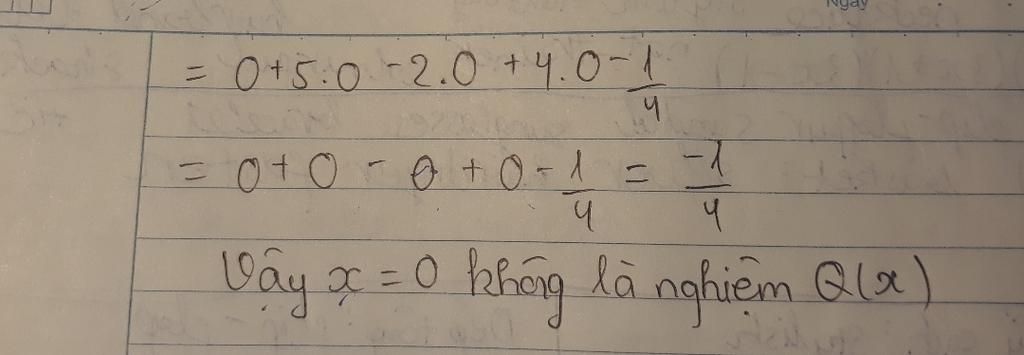 Ngày
= 0 + 5.0 - 2.0 + 4.0 - 1/4
= 0 + 0 - 0 + 0 - 1/4 = -1/4
Vậy x = 0 không là nghiệm Q(x)